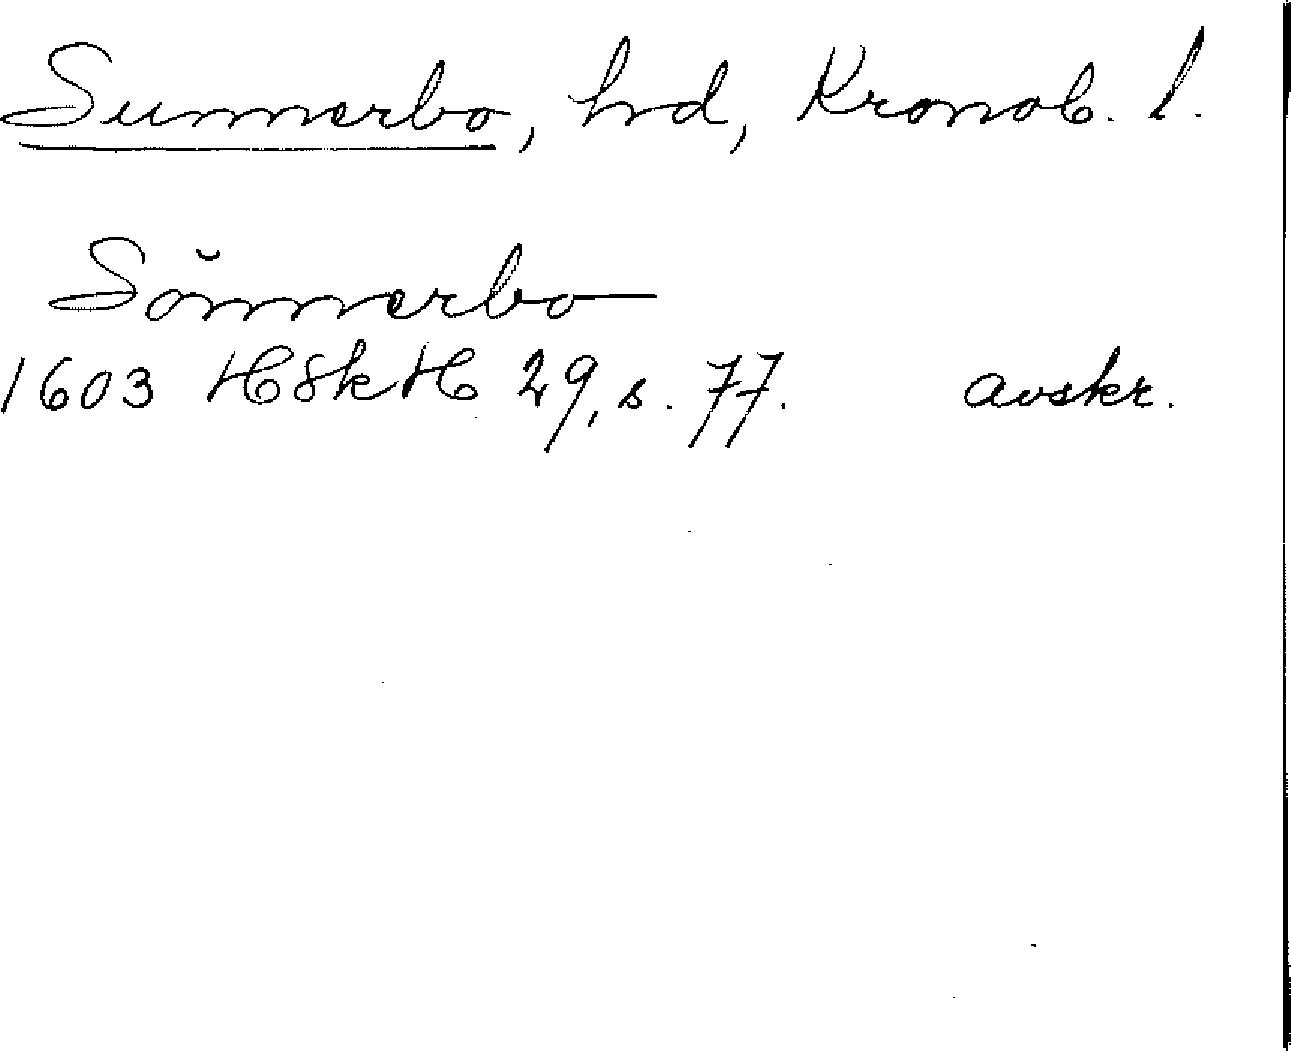 Sunnerbo, hd, Kronob. l.
Sŏnnerbo
1603 HSkH 29, s. 77. avskr.